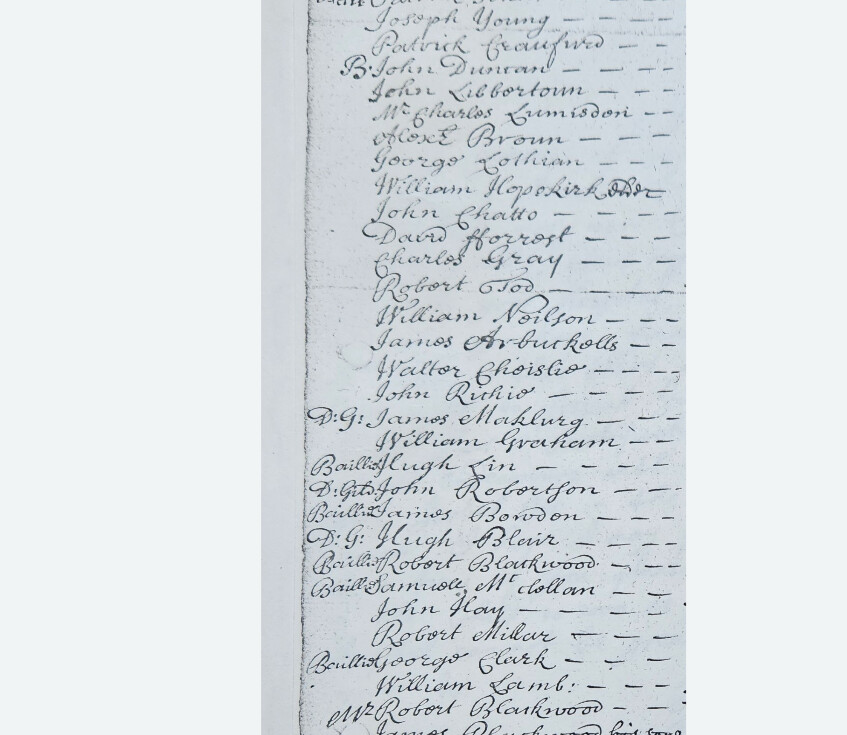 Joseph Young
Patrick Craufurd
B: John Duncan
John Libbertoun
Mr Charles Lumisden
Alexr Broun
George Lothian
William Hopekirk elder
John Chatto
David fforrest
Charles Gray
Robert Tod
William Neilson
James Arbuckells
Walter Cheislie
John Richie
D: G: James Maklurg
William Graham
Baillie Hugh Lin
D: Gild: John Robertson
Baillie James Bowden
D: G: Hugh Blair
Baillie Robert Blackwood
Baillie Samuell Mcclellan
John Hay
Robert Millar
Baillie George Clark
William Lamb:
Mr Robert Blackwood
James Blackwood his sone